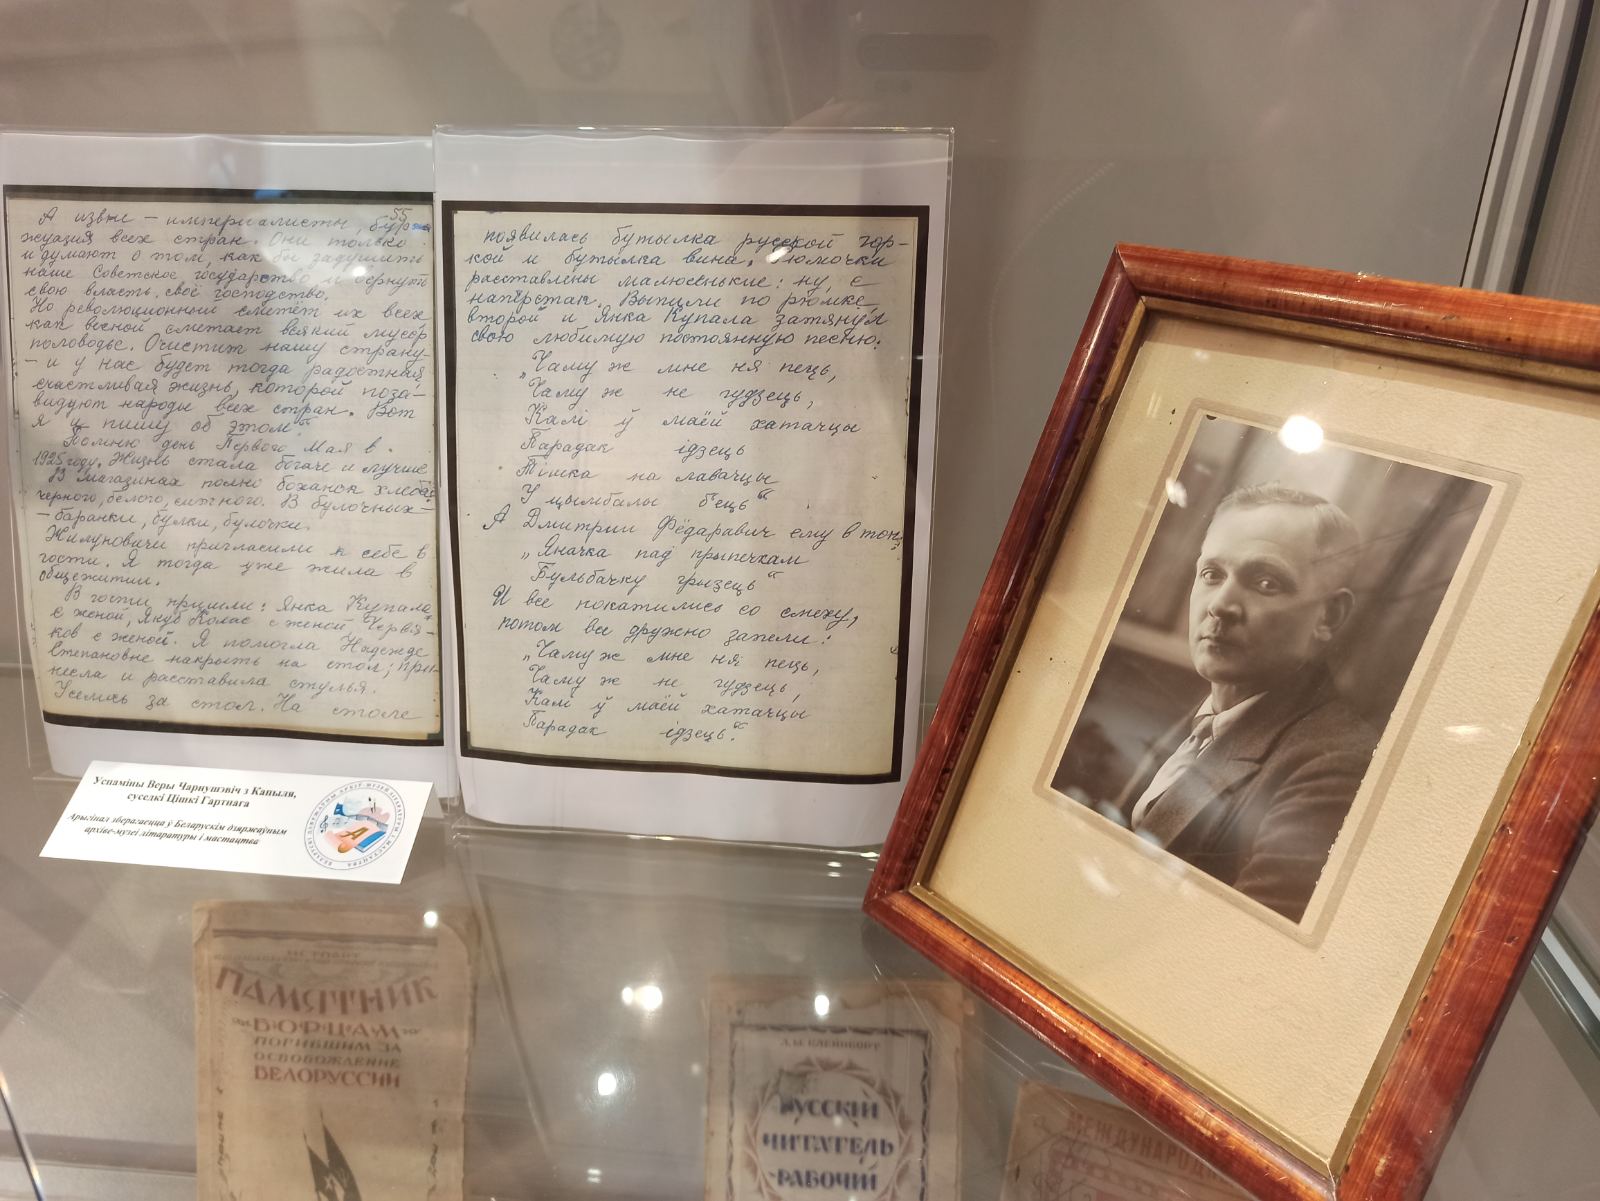 55
А извне — империалисты, бур-
жуазия всех стран. Они только
и думают о том, как бы задушить
наше Советское государство и вернуть
свою власть, своё господство.
Но революционный сметёт их всех
как весной сметает всякий мусор
половодье. Очистит нашу страну —
— и у нас будет тогда радостная
счастливая жизнь, которой поза-
видуют народы всех стран. Вот
я и пишу об этом“
Помню день Первого Мая в
1925 году. Жизнь стала богаче и лучше
В магазинах полно буханок хлеба:
черного, белого, ситного. В булочных —
— баранки, булки, булочки.
Жилуновичи пригласили к себе в
гости. Я тогда уже жила в
общежитии.
В гости пришли: Янка Купала
с женой, Якуб Колас с женой Червя-
ков с женой. Я помогла Надежде
Степановне накрыть на стол; при-
несла и расставила стулья.
Уселись за стол. На столе
появилась бутылка русской гор-
кой и бутылка вина. Рюмочки
расставлены малюсенькие: ну, с
напёрстак. Выпили по рюмке,
второй и Янка Купала затянул
свою любимую постоянную песню:
„Чаму ж мне ня пець,
Чаму ж не гудзець,
Калі ў маёй хатачцы
Парадак ідзець
Тішка на лавачцы
У цымбалы б'ець“
А Дмитрий Фёдаравич ему в тон:
„Яначка пад прыпечкам
Бульбачку грызець“
И все покатились со смеху,
потом все дружно запели:
„Чаму ж мне ня пець,
Чаму ж не гудзець,
Калі ў маёй хатачцы
Парадак ідзець.“
Успаміны Веры Чарнушэвіч з Капыля,
суседкі Цішкі Гартнага
Арыгінал зберагаецца ў Беларускім дзяржаўным
архіве-музеі літаратуры і мастацтва
БЕЛАРУСКІ ДЗЯРЖАЎНЫ АРХІЎ-МУЗЕЙ ЛІТАРАТУРЫ І МАСТАЦТВА
ИСТПАРТ
ПАМЯТНИК
БОРЦАМ
ПОГИБШИМ ЗА
ОСВОБОЖДЕНИЕ
БЕЛОРУССИИ
Л.М. КЛЕЙНБОРТ
РУССКИЙ
ЧИТАТЕЛЬ
-РАБОЧИЙ
МЕЖДУНАРОДН